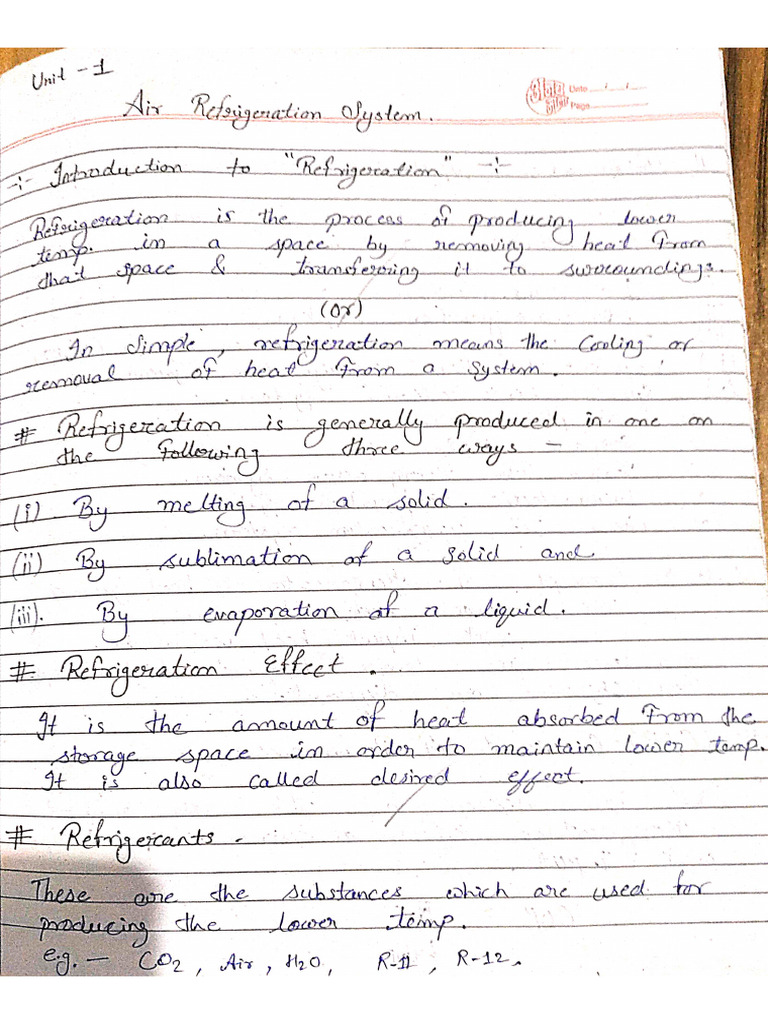 Unit - 1
Date / /
Page
Air Refrigeration System.
-:- Introduction to "Refrigeration" -:-
Refrigeration is the process of producing lower
temp. in a space by removing heat from
that space & transferring it to surroundings.
(Or)
In simple, refrigeration means the cooling or
removal of heat from a system.
# Refrigeration is generally produced in one on
the following three ways -
(i) By melting of a solid.
(ii) By sublimation of a solid and
(iii). By evaporation of a liquid.
# Refrigeration Effect.
It is the amount of heat absorbed from the
storage space in order to maintain lower temp.
It is also called desired effect.
# Refrigerants.
These are the substances which are used for
producing the lower temp.
e.g. - CO2, Air, H2O, R-11, R-12.